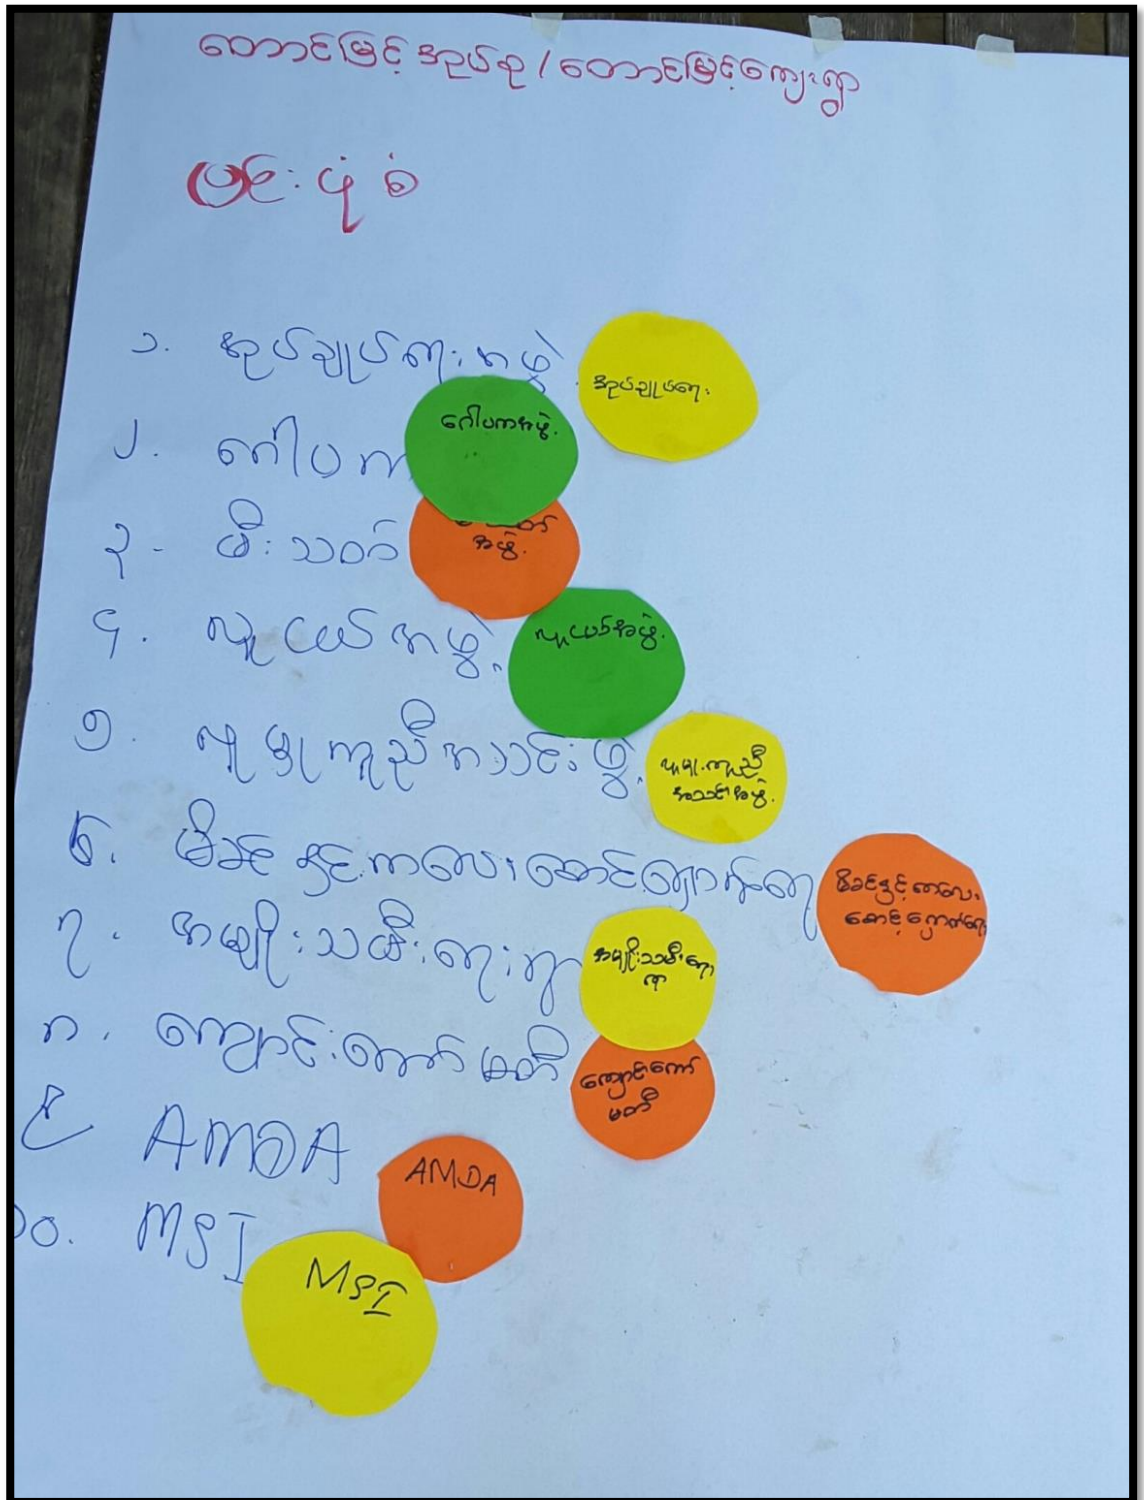 တောင်မြင့် အုပ်စု / တောင်မြင့်ကျေးရွာ
ပြင်းပုံစံ
၁. အုပ်ချုပ်ရေးအဖွဲ့
အုပ်ချုပ်ရေး
၂. ဂေါပက
ဂေါပကအဖွဲ့
၃- မီးသတ်
အဖွဲ့
၄. လူငယ်အဖွဲ့
လူငယ်အဖွဲ့
၅. လူမှုကူညီအသင်းဖွဲ့
လူမှုကူညီ
အသင်းအဖွဲ့
၆. မိခင်နှင့်ကလေးစောင့်ရှောက်ရေး
မိခင်နှင့်ကလေး
စောင့်ရှောက်ရေး
၇. အမျိုးသမီးရေးရာ
အမျိုးသမီးရေး
ရာ
၈. ကျောင်းကော်မတီ
ကျောင်းကော်
မတီ
၉ AMDA
AMDA
၁၀. MSI
MSI